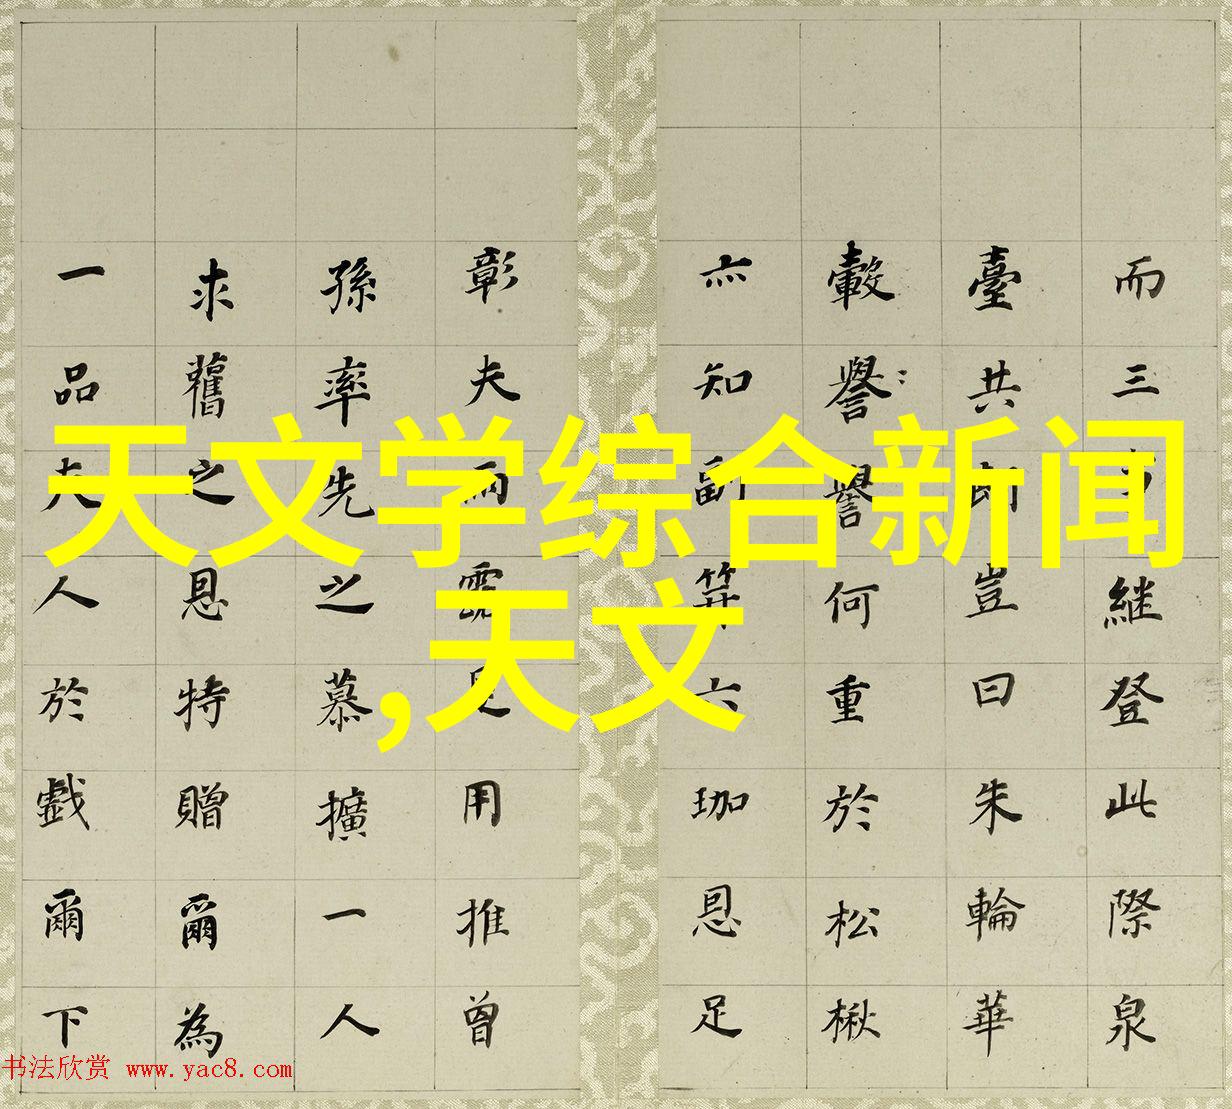 天文学综合新闻
,天文
而三継登此際泉
臺共豈曰朱輪華
轂譽譽何重於松楸
亦知副笄六珈恩足
彰夫用推曾
孫率先之慕擴一人
求舊之恩特贈爾為
一品夫人於戲爾下
书法欣赏 www.yac8.com